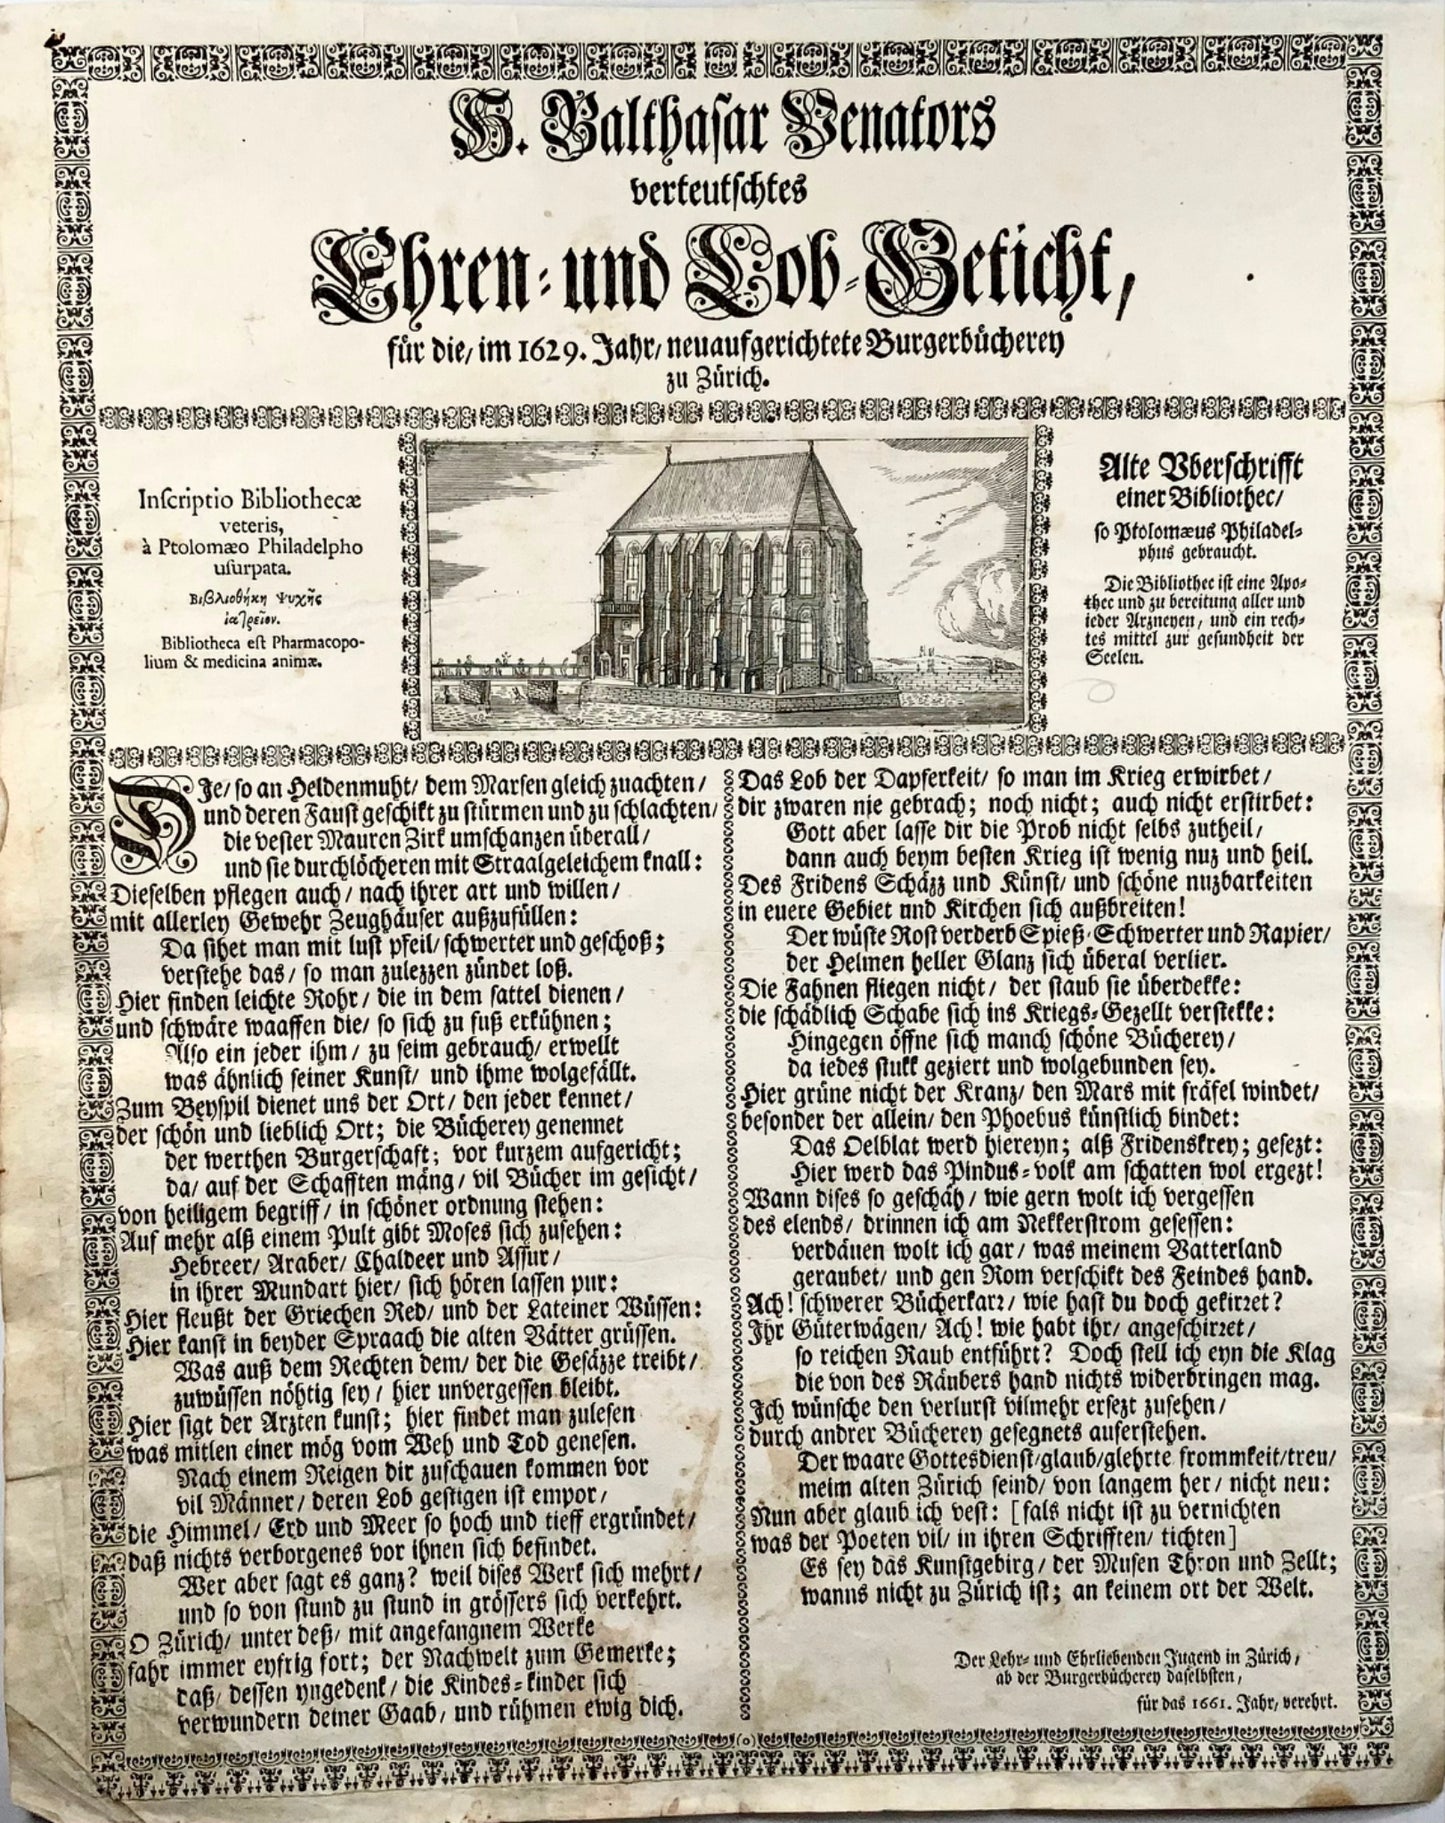 H. Balthasar Venators
verteutschtes
Ehren- und Lob-Geticht,
für die/ im 1629. Jahr/ neuaufgerichtete Burgerbücherey
zu Zürich.
Inscriptio Bibliothecæ
veteris,
à Ptolomæo Philadelpho
usurpata.
Βιβλιοθήκη Ψυχῆς
ἰατρεῖον.
Bibliotheca est Pharmacopo-
lium & medicina animæ.
Alte Vberschrifft
einer Bibliothec/
so Ptolomæus Philadel-
phus gebraucht.
Die Bibliothec ist eine Apo-
thec und zu bereitung aller und
jeder Arzneyen/ und ein rech-
tes mittel zur gesundheit der
Seelen.
DIe/ so an Heldenmuht/ dem Marsen gleich zuachten/
und deren Faust geschikt zu stürmen und zu schlachten/
die vester Mauren Zirk umschanzen überall/
und sie durchlöcheren mit Straalgeleichem knall:
Dieselben pflegen auch/ nach ihrer art und willen/
mit allerley Gewehr Zeughäuser außzufüllen:
Da sihet man mit lust pfeil/ schwerter und geschoß;
verstehe das/ so man zulezzen zündet loß.
Hier finden leichte Rohr/ die in dem sattel dienen/
und schwäre waaffen die/ so sich zu fuß erkühnen;
Also ein jeder ihm/ zu seim gebrauch/ erwellt
was ähnlich seiner Kunst/ und ihme wolgefällt.
Zum Beyspil dienet uns der Ort/ den jeder kennet/
der schön und lieblich Ort; die Bücherey genennet
der werthen Burgerschaft; vor kurzem aufgericht;
da/ auf der Schafften mäng/ vil Bücher im gesicht/
von heiligem begriff/ in schöner ordnung stehen:
Auf mehr alß einem Pult gibt Moses sich zusehen:
Hebreer/ Araber/ Chaldeer und Assur/
in ihrer Mundart hier/ sich hören lassen pur:
Hier fleußt der Griechen Red/ und der Lateiner Wüssen:
Hier kanst in beyder Spraach die alten Vätter grüssen.
Was auß dem Rechten dem/ der die Gesäzze treibt/
zuwüssen nöhtig sey/ hier unvergessen bleibt.
Hier sigt der Arzten kunst; hier findet man zulesen
was mitlen einer mög vom Weh und Tod genesen.
Nach einem Reigen dir zuschauen kommen vor
vil Männer/ deren Lob gestigen ist empor/
die Himmel/ Erd und Meer so hoch und tieff ergründet/
daß nichts verborgenes vor ihnen sich befindet.
Wer aber sagt es ganz? weil dises Werk sich mehrt/
und so von stund zu stund in grössers sich verkehrt.
O Zürich/ unter deß/ mit angefangnem Werke
fahr immer eyfrig fort; der Nachwelt zum Gemerke;
daß/ dessen yngedenk/ die Kindes-kinder sich
verwundern deiner Gaab/ und rühmen ewig dich.
Das Lob der Dapferkeit/ so man im Krieg erwirbet/
dir zwaren nie gebrach; noch nicht; auch nicht erstirbet:
Gott aber lasse dir die Prob nicht selbs zutheil/
dann auch beym besten Krieg ist wenig nuz und heil.
Des Fridens Schäzz und Künst/ und schöne nuzbarkeiten
in euere Gebiet und Kirchen sich außbreiten!
Der wüste Rost verderb Spieß-Schwerter und Rapier/
der Helmen heller Glanz sich überal verlier.
Die Fahnen fliegen nicht/ der staub sie überdekke:
die schädlich Schabe sich ins Kriegs-Gezellt verstekke:
Hingegen öffne sich manch schöne Bücherey/
da jedes stukk geziert und wolgebunden sey.
Hier grüne nicht der Kranz/ den Mars mit fräfel windet/
besonder der allein/ den Phoebus künstlich bindet:
Das Oelblat werd hiereyn; alß Fridenskrey; gesezt:
Hier werd das Pindus-volk am schatten wol ergezt!
Wann dises so geschäh/ wie gern wolt ich vergessen
des elends/ drinnen ich am Nekkerstrom gesessen:
verdäuen wolt ich gar/ was meinem Vatterland
geraubet/ und gen Rom verschikt des Feindes hand.
Ach! schwerer Bücherkarr/ wie hast du doch gekirret?
Ihr Güterwägen/ Ach! wie habt ihr/ angeschirret/
so reichen Raub entführt? Doch stell ich eyn die Klag
die von des Räubers hand nichts widerbringen mag.
Ich wünsche den verlurst vilmehr ersezt zusehen/
durch andrer Bücherey gesegnets auferstehen.
Der waare Gottesdienst/ glaub/ glehrte frommkeit/ treu/
meim alten Zürich seind/ von langem her/ nicht neu:
Nun aber glaub ich vest: [fals nicht ist zu vernichten
was der Poeten vil/ in ihren Schrifften/ tichten]
Es sey das Kunstgebirg/ der Musen Thron und Zellt;
wanns nicht zu Zürich ist; an keinem ort der Welt.
Der Lehr- und Ehrliebenden Jugend in Zürich/
ab der Burgerbücherey daselbsten,
für das 1661. Jahr, verehrt.